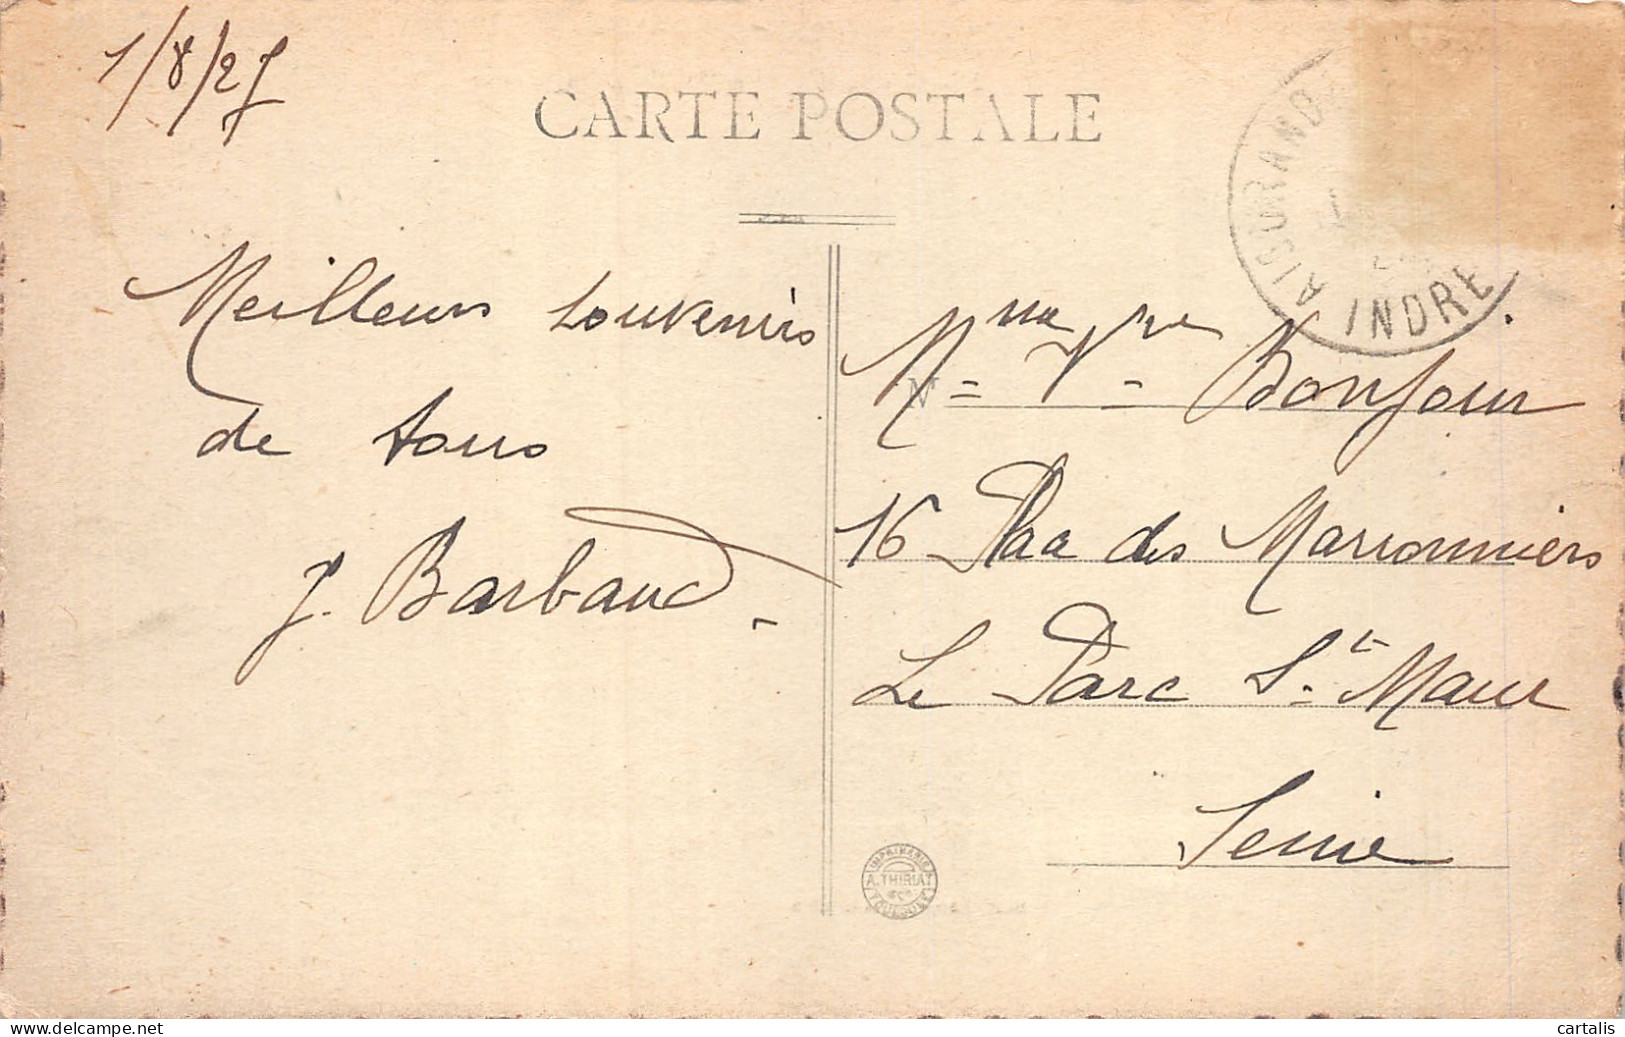 1/8/27
CARTE POSTALE
AIGURANDE
INDRE
Meilleurs souvenirs
de tous
J. Barbaud.
Mme Vve Bonjour
16 Place des Marronniers
Le Parc St. Maur
Seine
IMPRIMERIE
A. THIRIAT
TOULOUSE
delcampe.net
cartalis